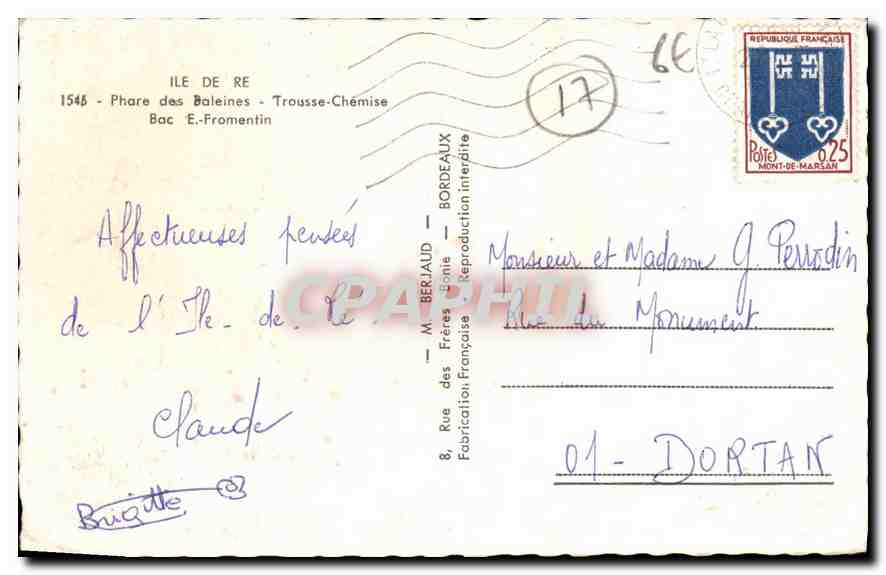 ILE DE RE
1545 - Phare des Baleines - Trousse-Chémise
Bac E.-Fromentin
Affectueuses pensées
de l'Ile-de-Ré
Claude
Brigitte
— M. BERJAUD — BORDEAUX
8, Rue des Frères-Bonie
Fabrication Française - Reproduction interdite
17
6€
REPUBLIQUE FRANÇAISE
POSTES
0,25
MONT-DE-MARSAN
Monsieur et Madame G. Perrodin
Rue du Monument
01 - DORTAN
CPAPHIL